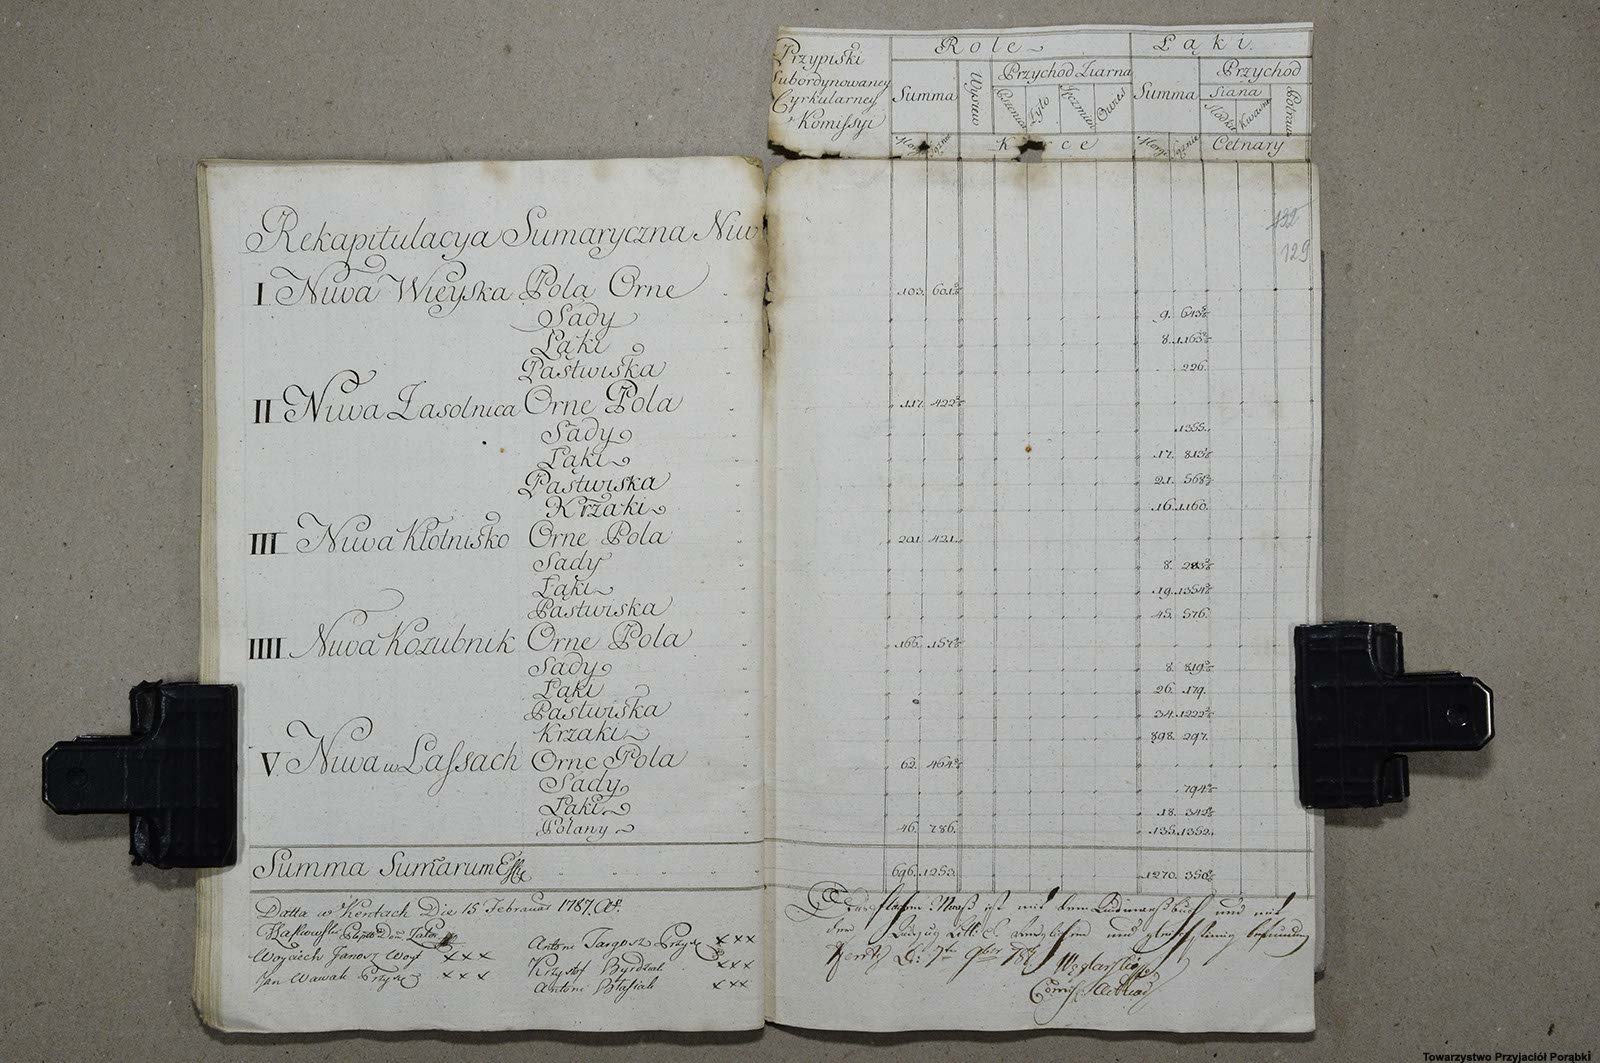 Przypiski Subordynowaney Cyrkularney Komissyi
Role
Łąki
Summa
Wysiew
Przychod Ziarna
Pszenica
Żyto
Jęczmień
Owies
Summa
Przychod
Siana
Słodkie
Kwaśne
Potraw
Morgi
Sążnie
Korce
Morgi
Sążnie
Cetnary
132
129
Rekapitulacya Sumaryczna Niw
I Niwa Wieyska Pola Orne 103. 601 2/6
Sady 9. 613 2/6
Łąki 8. 1163 2/6
Pastwiska 226.
II Niwa Zasolnica Orne Pola 117. 422 2/6
Sady 1355.
Łąki 17. 813 2/6
Pastwiska 21. 568 2/6
Krzaki 16. 1160.
III Niwa Kłotnisko Orne Pola 201. 421.
Sady 8. 283 2/6
Łąki 19. 1354 2/6
Pastwiska 45. 576.
IIII Niwa Kozubnik Orne Pola 166. 157 2/6
Sady 8. 819 2/6
Łąki 26. 179.
Pastwiska 34. 1222 2/6
Krzaki 898. 297.
V Niwa w Lassach Orne Pola 62. 464 2/6
Sady 794 2/6
Łąki 18. 342 2/6
Polany 46. 786. 135. 1352.
Summa Sumarum 696. 1253. 1270. 350 2/6
Datta w Kentach Die 15 Februar 1787
Woyciech Janosz Woyt xxx
Jan Wawak Przys xxx
Antoni Targosz Przys xxx
Krzysztof Byrdziak xxx
Antoni Błasiak xxx
Towarzystwo Przyjaciół Porąbki